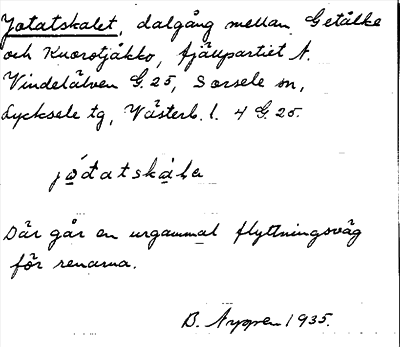 Jotatskalet, dalgång mellan Getålke
och Kuorotjåkko, fjällpartiet N.
Vindelälven G. 25, Sorsele sn,
Lycksele tg, Västerb. l. 4 G 25.
Där går en urgammal flyttningsväg
för renarna.
B. Nyppen 1935.